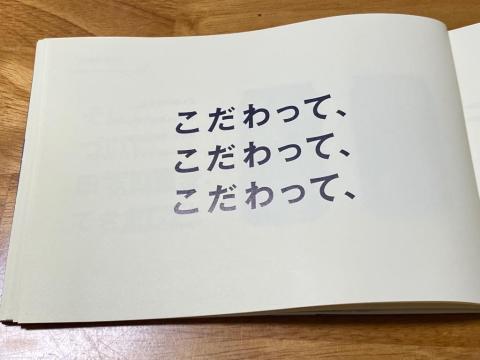 こだわって、
こだわって、
こだわって、